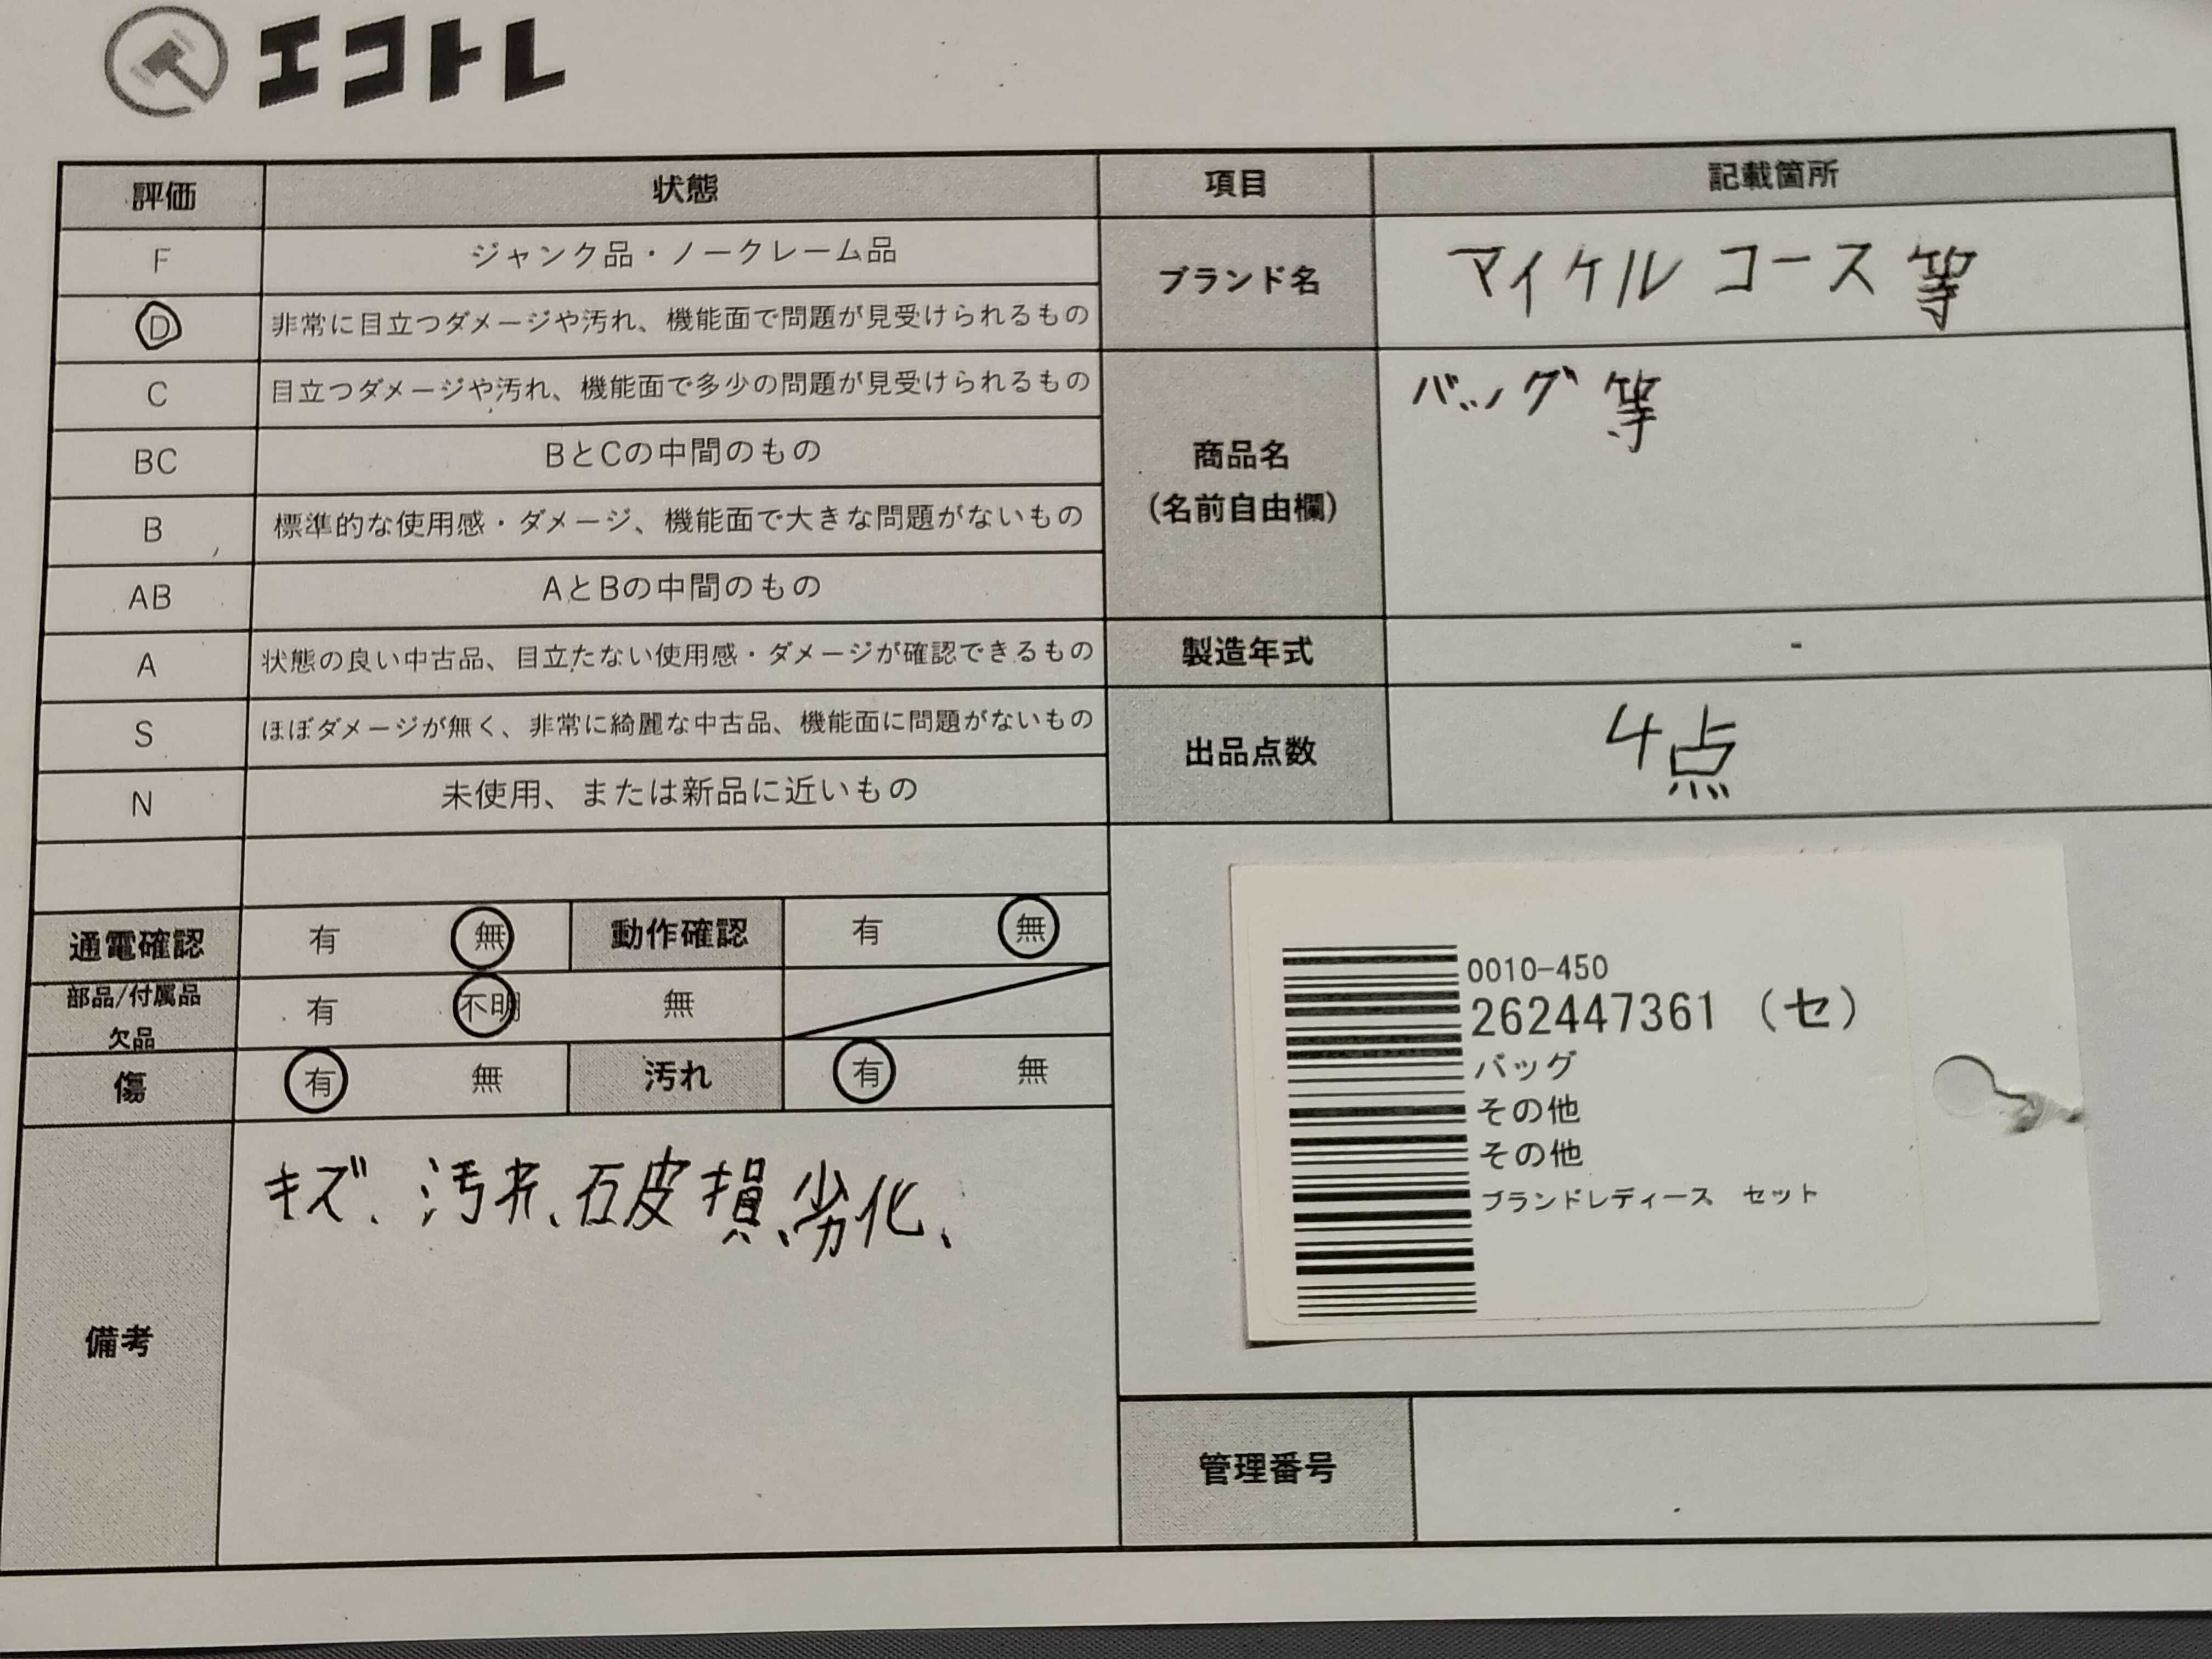 エコトレ
評価 状態 項目 記載箇所
F ジャンク品・ノークレーム品
D 非常に目立つダメージや汚れ、機能面で問題が見受けられるもの
C 目立つダメージや汚れ、機能面で多少の問題が見受けられるもの
BC BとCの中間のもの
B 標準的な使用感・ダメージ、機能面で大きな問題がないもの
AB AとBの中間のもの
A 状態の良い中古品、目立たない使用感・ダメージが確認できるもの
S ほぼダメージが無く、非常に綺麗な中古品、機能面に問題がないもの
N 未使用、または新品に近いもの
ブランド名 マイケルコース等
商品名
(名前自由欄)
バッグ等
製造年式 -
出品点数 4点
通電確認 有 無 動作確認 有 無
部品/付属品
欠品
有 不明 無
傷 有 無 汚れ 有 無
備考
キズ、汚れ、破損、劣化、
0010-450
262447361 (セ)
バッグ
その他
その他
ブランドレディース セット
管理番号